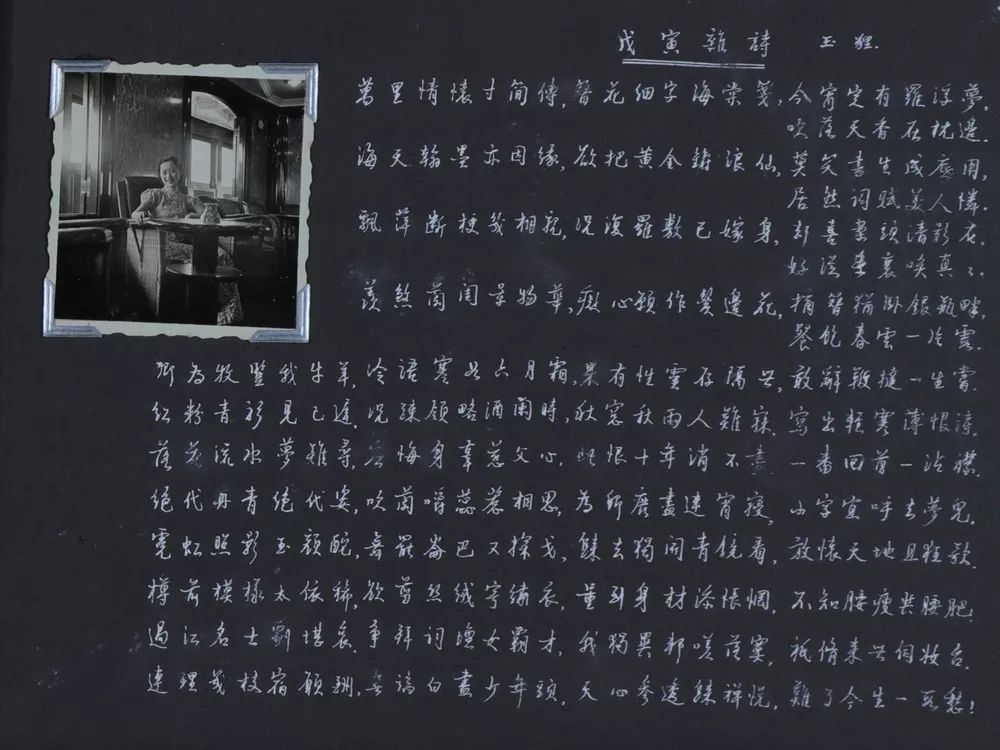 戊寅雜詩 玉狸.
萬里情懷寸簡傳,簪花細字海棠箋,今宵定有羅浮夢,
吹落天香在枕邊.
海天翰墨亦因緣,欲把黃金鑄浪仙,莫笑書生成底用,
居然詞賦美人憐.
飄萍斷梗我相親,況復羅敷已嫁身,却喜案頭清影在,
好從畫裏喚真々.
羨煞閨景物華,痴心願作鬢邊花,摘簪猶卧銀瓶畔,
餐飽春雲一片霞.
為牧豎我牛羊,冷語寒如六月霜,果有性靈存隔世,敢辭鞭撻一生嘗.
紅粉青衫見已遲,況疎領略酒闌時,秋窗秋雨人難寐,寫出輕寒薄恨詩.
落花流水夢難尋,無悔身辜慈父心,此恨十年消不盡,一番回首一沾襟.
絕代丹青絕代姿,吹蕊惹相思,為畫連宵寢,小字宜呼去夢兒.
霓虹照影玉顏酡,舞罷崙巴又探戈,歸去獨開青鏡看,放懷天地且狂歌.
樽前模樣太依稀,欲剪絲絨寄繡衣,量到身材添悵惘,不知腰瘦與腰肥.
過江名士劇堪哀,爭拜詞壇女霸才,我獨異邦嗟落寞,祇脩來共伺妝台.
連理幾枝宿願酬,無端白盡少年頭,天心參透禪悅,難了今生一死愁!